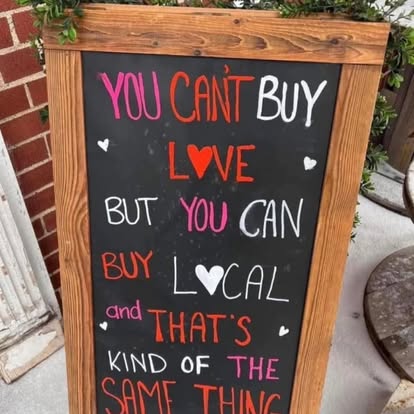 YOU CAN'T BUY
LOVE
BUT YOU CAN
BUY LOCAL
and THAT'S
KIND OF THE
SAME THING